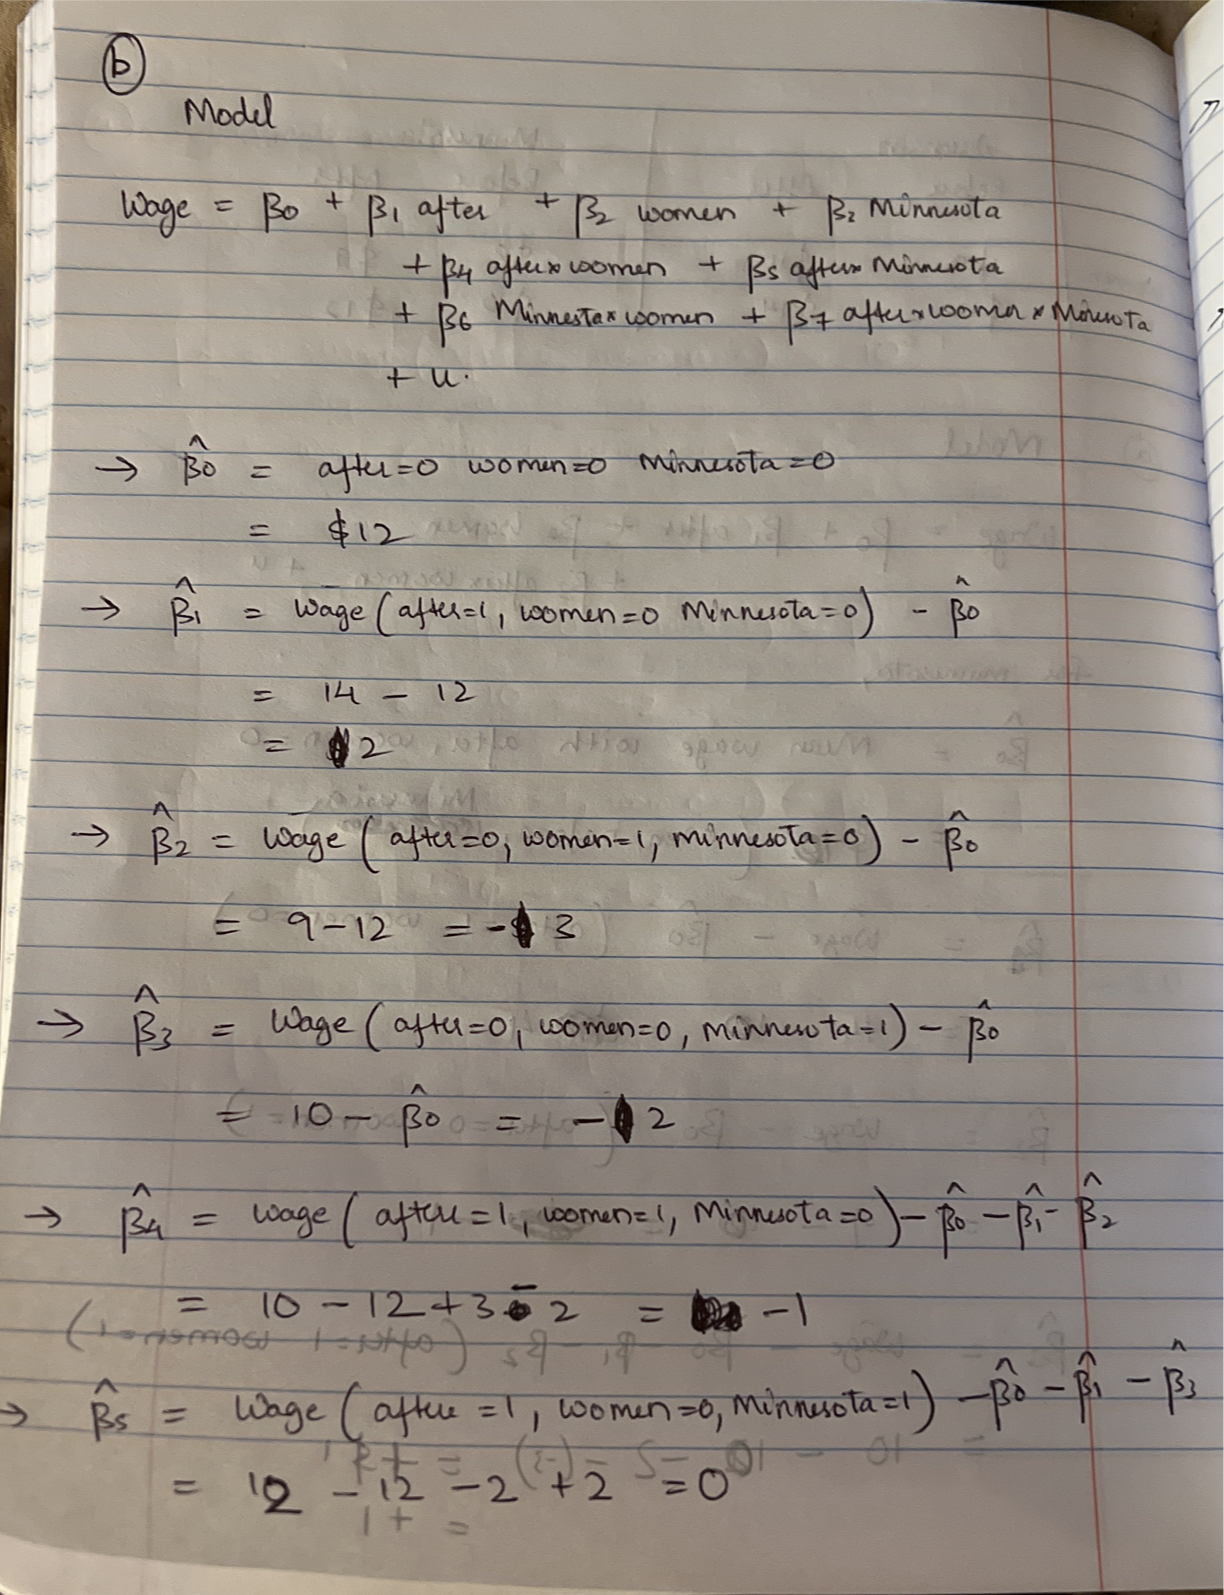 b
Model
Wage = β0 + β1 after + β2 women + β2 Minnesota
+ β4 after × women + β5 after × Minnesota
+ β6 Minnesta × women + β7 after × women × Minnesota
+ u.
→ β̂0 = after=0 women=0 Minnesota=0
= $12
→ β̂1 = Wage (after=1, women=0 Minnesota=0) - β̂0
= 14 - 12
= 2
→ β̂2 = Wage (after=0, women=1, Minnesota=0) - β̂0
= 9-12 = -3
→ β̂3 = Wage (after=0, women=0, Minnesota=1) - β̂0
= 10 - β̂0 = -2
→ β̂4 = Wage (after=1, women=1, Minnesota=0) - β̂0 - β̂1 - β̂2
= 10 - 12 + 3 - 2 = -1
→ β̂5 = Wage (after=1, women=0, Minnesota=1) - β̂0 - β̂1 - β̂3
= 12 - 12 - 2 + 2 = 0